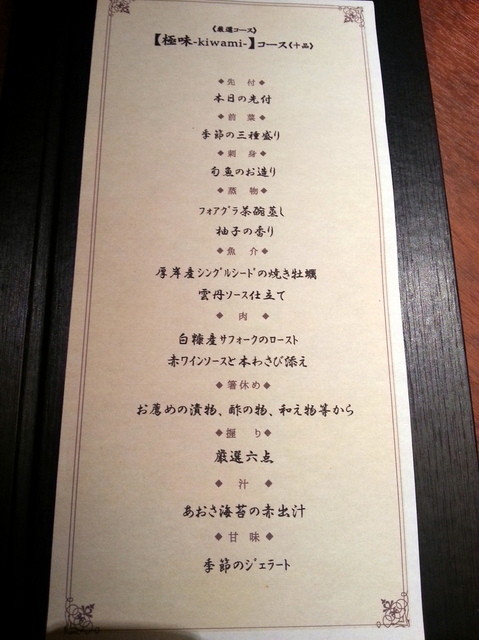 《厳選コース》
【極味-kiwami-】コース《十品》
◆先 付◆
本日の先付
◆前 菜◆
季節の三種盛り
◆刺 身◆
旬魚のお造り
◆蒸 物◆
フォアグラ茶碗蒸し
柚子の香り
◆魚 介◆
厚岸産シングルシードの焼き牡蠣
雲丹ソース仕立て
◆ 肉 ◆
白糠産サフォークのロースト
赤ワインソースと本わさび添え
◆箸休め◆
お薦めの漬物、酢の物、和え物等から
◆握 り◆
厳選六点
◆ 汁 ◆
あおさ海苔の赤出汁
◆甘 味◆
季節のジェラート